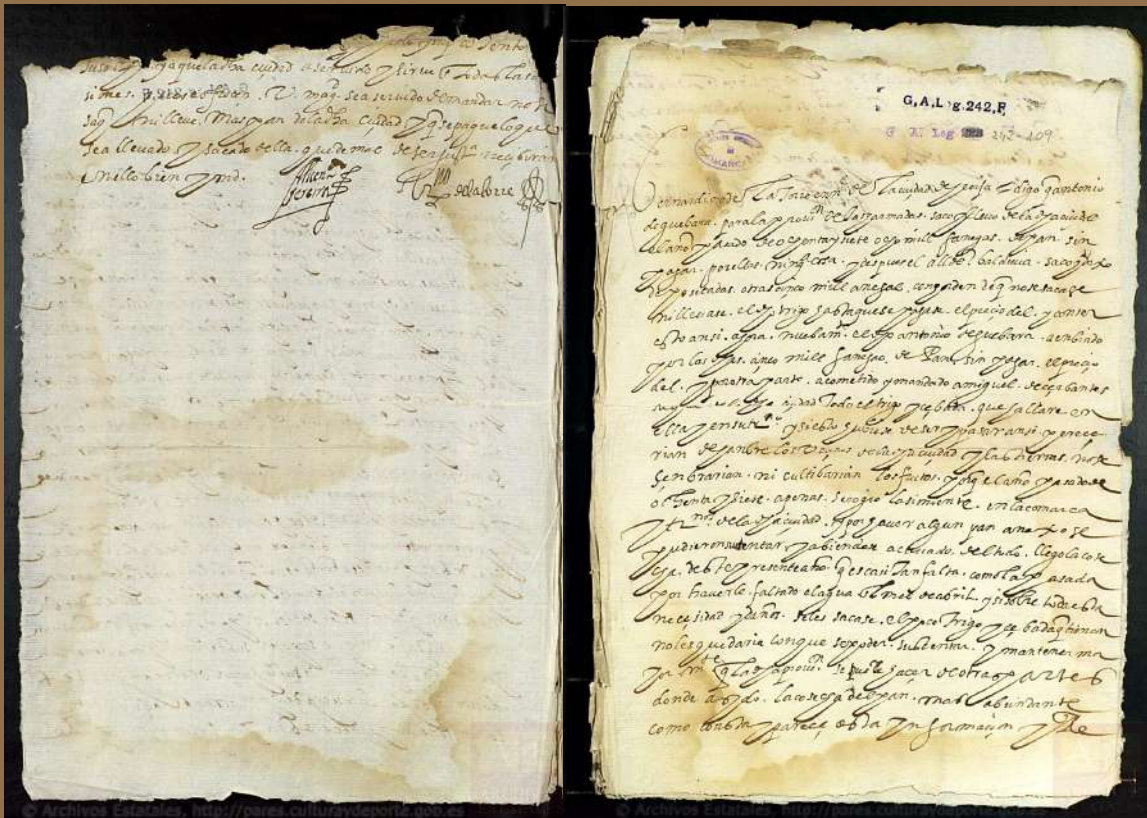 susodho y que la dha ciudad a servido y sirve en todas las oca
siones. V. magd. sea servido de mandar no se
saq ni lleve. mas pan de la dha ciudad y q se pague lo que
sea llevado y sacado della. que demas de ser justa recibiran
en ello bien y md.
de la torre
G.A. Leg. 242, F
G A Leg 242-409
SIMANCAS
Bernardino de la torre en ne. de la ciudad de ecija digo q antonio
de guebara. para la provisn de las armadas. saco y llevo de la dha ciudad
el año pasado de ochenta y siete ocho mill fanegas. de pan sin
pagar. por ellas. ning cosa. y despues el allde. baldivia. saco y dexo
depositadas. otras cinco mill anegas. con orden de q no se sacase
ni llevase. el dho trigo hasta que se pagase. el precio del. y con ser
esto ansi. agora. nuebamte. el dho antonio de guebara. a enbiado
por las dhas. cinco mill fanegas. de Pan. sin pagar. el precio
del. y por otra parte. a cometido y mandado a miguel. de cerbantes
saque de la dha ciudad todo el trigo y cebada. que hallare en
Ella y en su trno y si esto hubiese de ser y pasar ansi. perece
rian de hanbre los vezinos de la dha ciudad y las tierras. no se
senbrarian. ni cultibarian los frutos. porq el año pasado de
ochenta y siete. apenas. se cogio la simiente. en la comarca
y trno. de la dha ciudad. y por haver algun pan anexo se
pudieron sustentar. y abiendose acavado. del todo. llego la cose
cha. deste presente año. q es casi tan falta. como la pasada
por haverle. faltado el agua el mes de abril. y si sobre toda esta
necesidad y daños. se les sacase. el poco trigo y cebada q tienen
no les quedaria con que se poder. sustentar. y mantener ma
yor mte. q las dhas provisn. se puede hacer de otras partes
donde a sido. la cosecha del pan. mas abundante
como consta y parece desta ynformacion
© Archivos Estatales, http://pares.culturaydeporte.gob.es
© Archivos Estatales, http://pares.culturaydeporte.gob.es